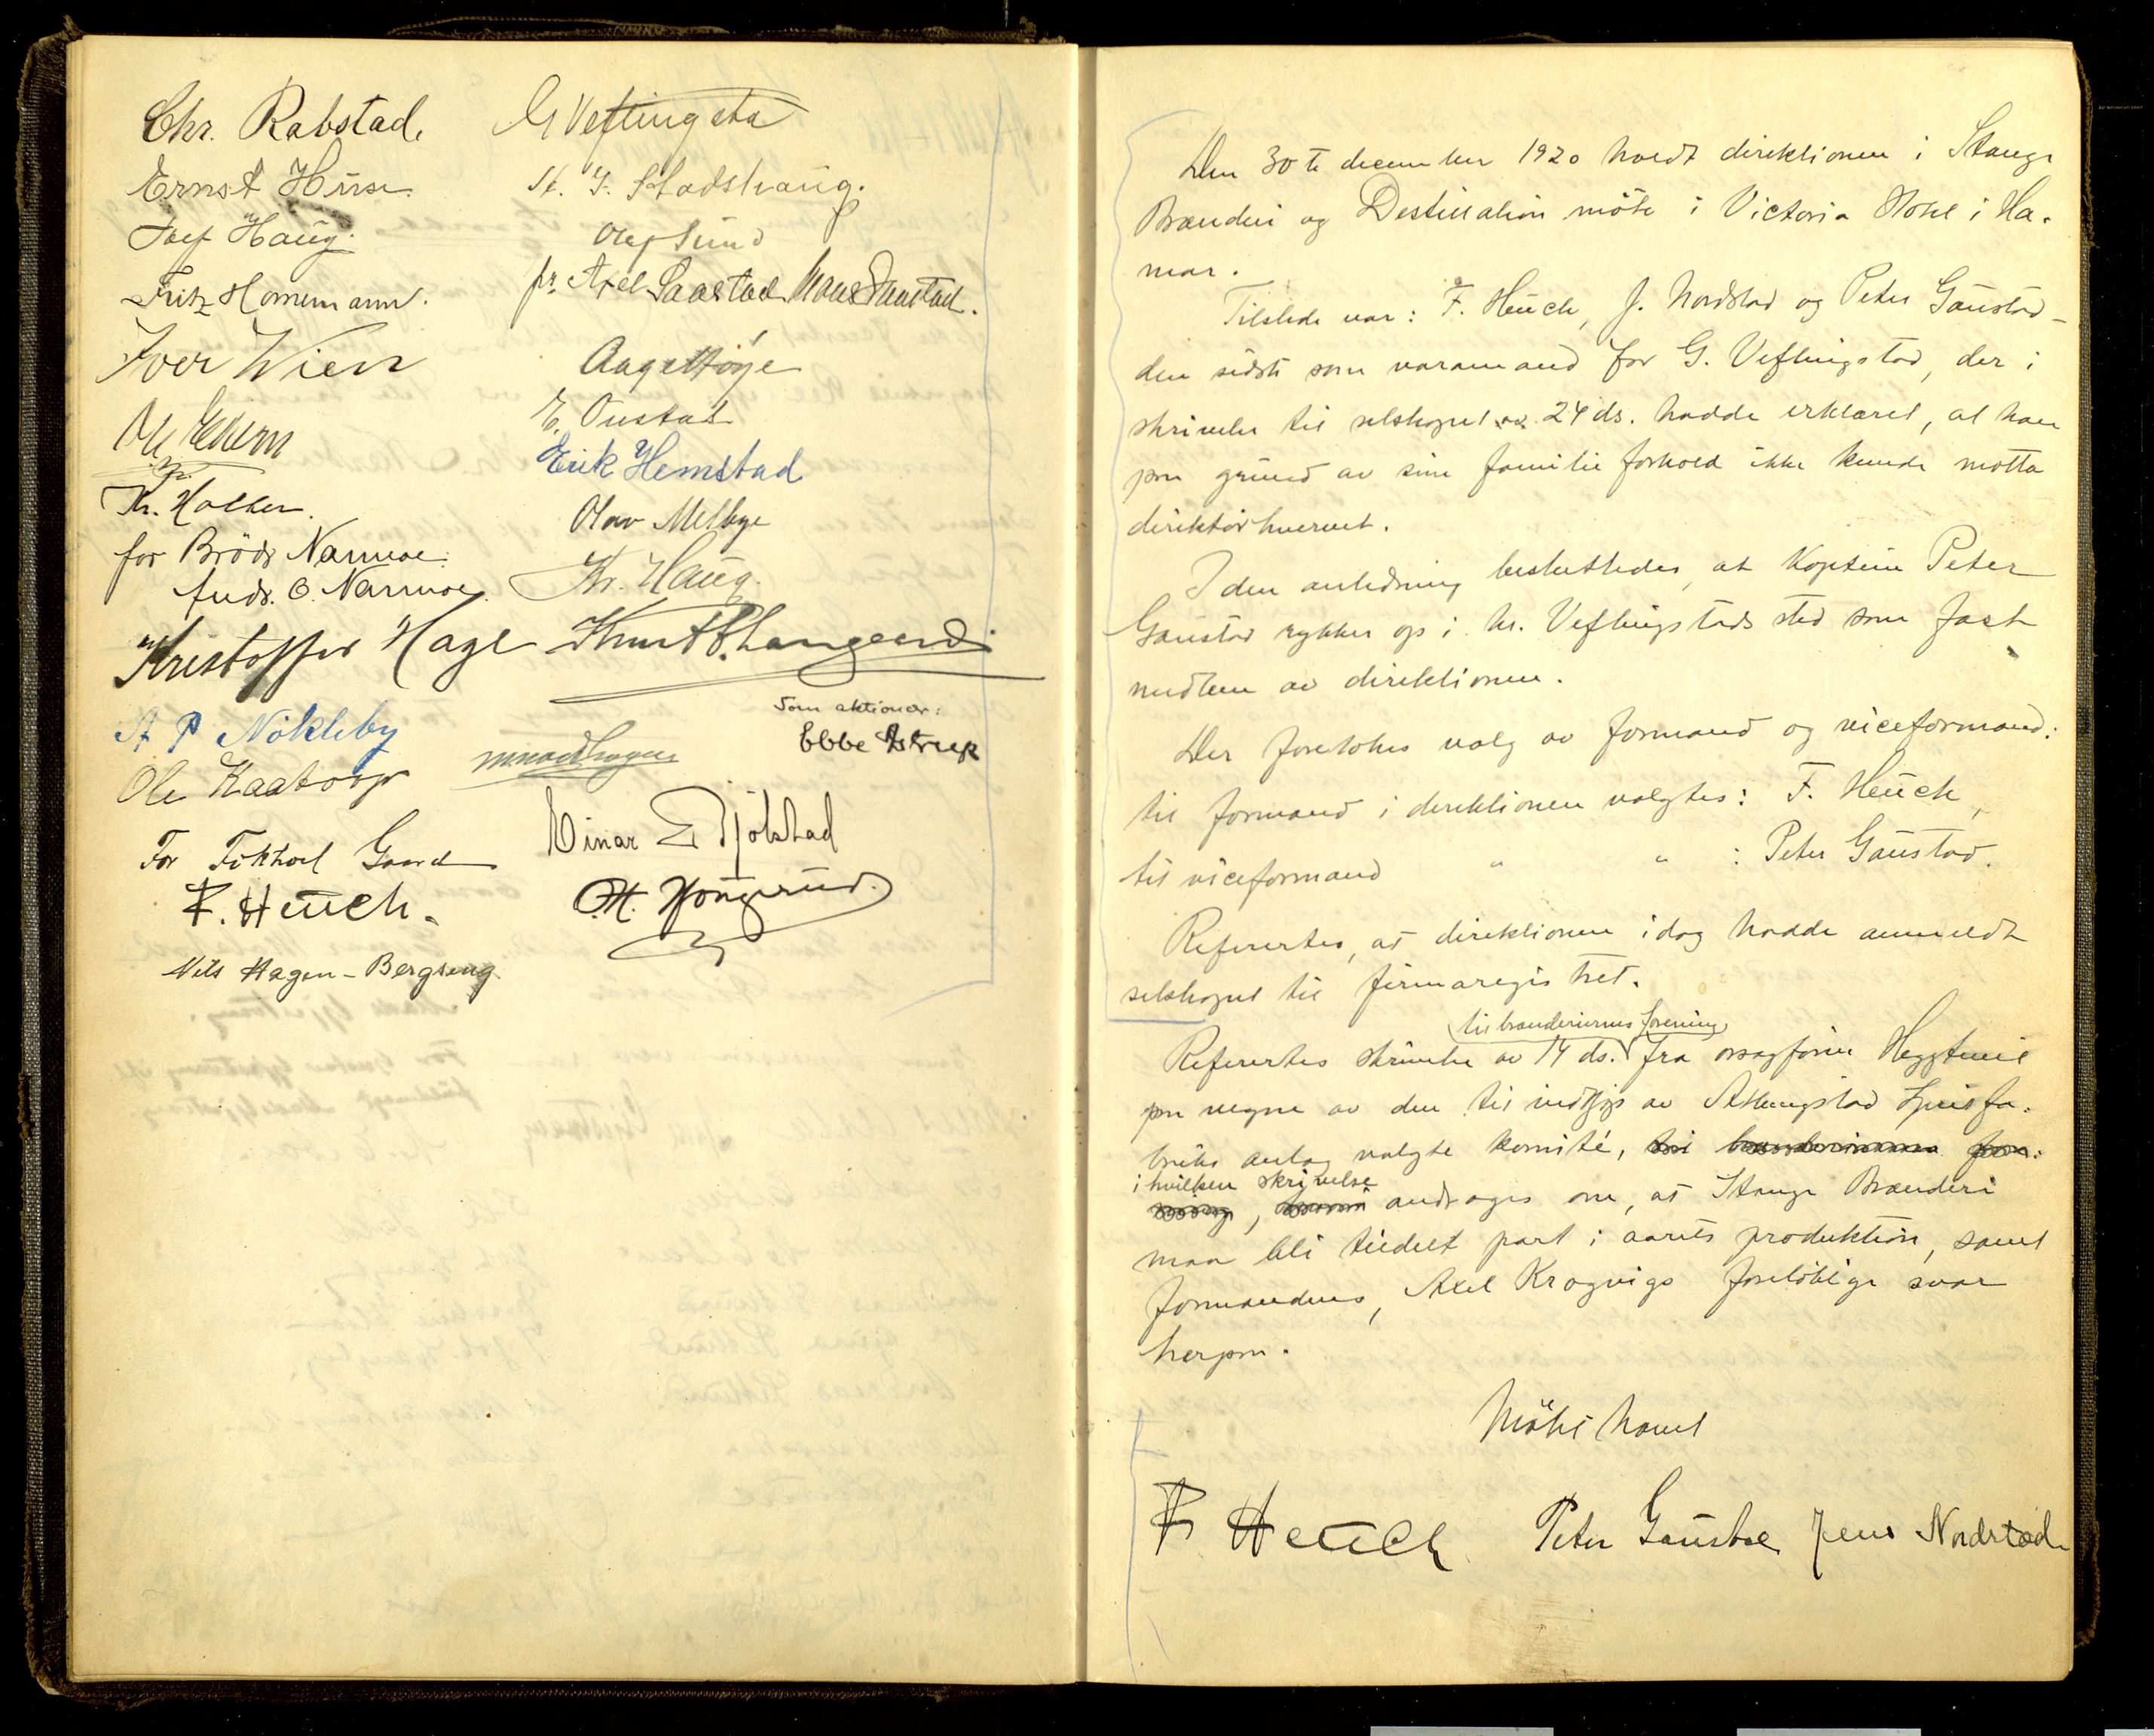 Chr. Rabstad.
Ernst Huse.
Haug.
Fritz Hornemann.
Iver Wien
Kr. Holher.
for Brödr Narmoe.
Andr. O. Narmoe.
Kristoffer Hagl
A P Nökleby
Ole Kaatorp
For Fokhol Gaard
F. Heuch.
Nils Hagen-Bergseng.
G Veflingsta
Stadshaug.
Olaf Sund
pr. Axel Saastad Hans Saastad.
Aage Höye
E. Oustad
Erik Hemstad
Olav Melbye
Kr. Haug.
Knut B. Langeard
Som aktionær:
Ebbe Astrup
Einar E Djölstad
Hougerud.
Den 30te december 1920 holdt direktionen i Stange
Brænderi og Destillation möte i Victoria Hotel i Ha-
mar.
Tilstede var: F. Heuch, J. Nordstad og Peter Gaustad -
den sidste som varamand for G. Veflingstad, der i
skrivelse til selskapet av 24 ds. hadde erklæret, at han
paa grund av sine familieforhold ikke kunde motta
direktörhvervet.
I den anledning besluttedes, at Kaptein Peter
Gaustad rykker op i hr. Veflingstads sted som fast
medlem av direktionen.
Der foretokes valg av formand og viceformand:
til formand i direktionen valgtes: F. Heuch,
til viceformand " " : Peter Gaustad.
Refertes, at direktionen idag hadde anmeldt
selskapet til firmaregistret.
til brænderiernes forening
Refertes skrivelse av 14 ds. fra orsagförer Heggtveit
paa vegne av den til indkjöp av Atlungstad Spritfa-
briks anlæg valgte komité,
i hvilken skrivelse
andrages om, at Stange Brænderi
maa bli tildelt part i aarets produktion, samt
formandens, Axel Krogvigs foreløbige svar
herpaa.
Mötet hævet
F Heuch Peter Gaustad Jens Nordstad